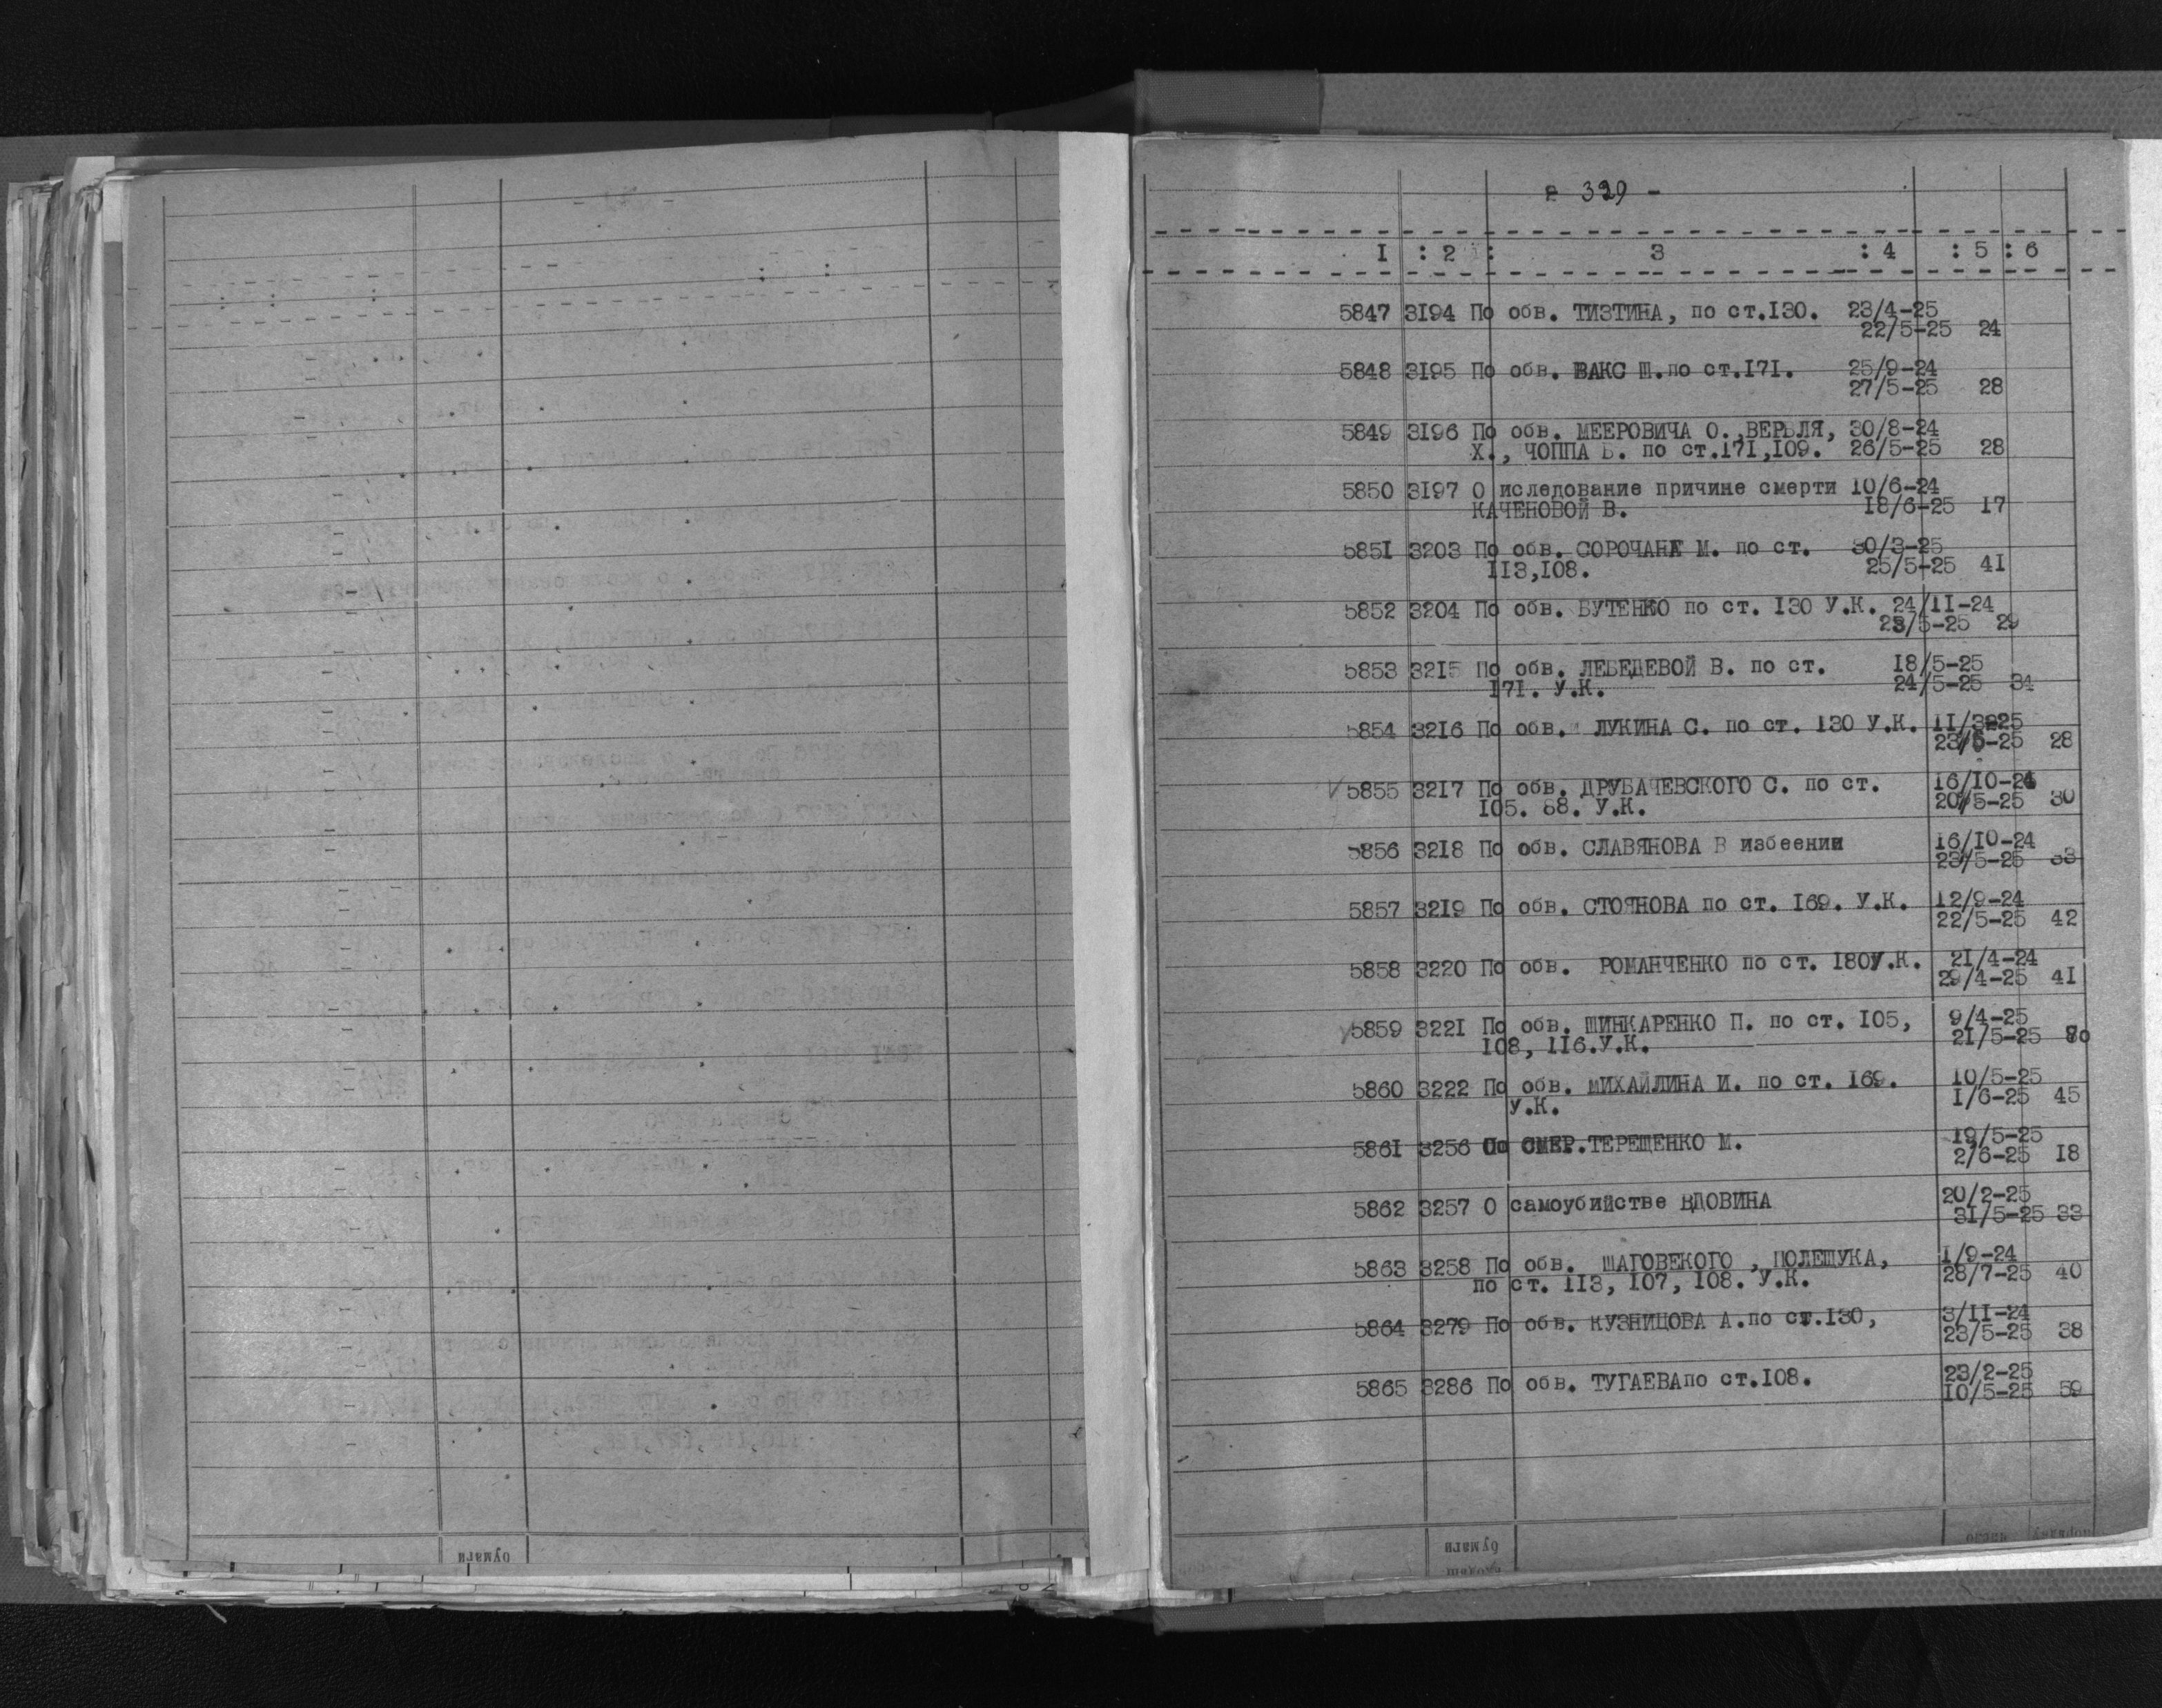 - 329 -
I : 2 : 3 : 4 : 5 : 6
5847 3194 По обв. ТИЗТИНА, по ст.I30. 23/4-25
22/5-25 24
5848 3195 По обв. ВАКС Ш.по ст.I7I. 25/9-24
27/5-25 28
5849 3196 По обв. МЕЕРОВИЧА О.,ВЕРБЛЯ, 30/8-24
Х., ЧОППА Б. по ст.I7I,I09. 26/5-25 28
5850 3197 О иследование причине смерти I0/6-24
КАЧЕНОВОЙ В. I8/6-25 I7
585I 3203 По обв. СОРОЧАНЖ М. по ст. 30/3-25
II3,I08. 25/5-25 4I
5852 3204 По обв. БУТЕНКО по ст. I30 У.К. 24/II-24
23/5-25 29
5853 32I5 По обв. ЛЕБЕДЕВОЙ В. по ст. I8/5-25
I7I. У.К. 24/5-25 34
5854 32I6 По обв. ЛУКИНА С. по ст. I30 У.К. II/3-25
23/5-25 28
5855 32I7 По обв. ДРУБАЧЕВСКОГО С. по ст. I6/I0-24
I05. 88. У.К. 20/5-25 30
5856 32I8 По обв. СЛАВЯНОВА В избеении I6/I0-24
23/5-25 33
5857 32I9 По обв. СТОЯНОВА по ст. I69. У.К. I2/9-24
22/5-25 42
5858 3220 По обв. РОМАНЧЕНКО по ст. I80У.К. 2I/4-24
29/4-25 4I
5859 322I По обв. ШИНКАРЕНКО П. по ст. I05, 9/4-25
I08, II6.У.К. 2I/5-25 80
5860 3222 По обв. МИХАЙЛИНА И. по ст. I69. I0/5-25
У.К. I/6-25 45
586I 3256 По СМЕР.ТЕРЕЩЕНКО М. I9/5-25
2/6-25 I8
5862 3257 О самоубийстве ВДОВИНА 20/2-25
3I/5-25 33
5863 3258 По обв. ШАГОВЕКОГО , ПОЛЕЩУКА, I/9-24
по ст. II3, I07, I08. У.К. 28/7-25 40
5864 3279 По обв. КУЗНИЦОВА А.по ст.I30, 3/II-24
23/5-25 38
5865 3286 По обв. ТУГАЕВАпо ст.I08. 23/2-25
I0/5-25 59
бумаги
бумаги